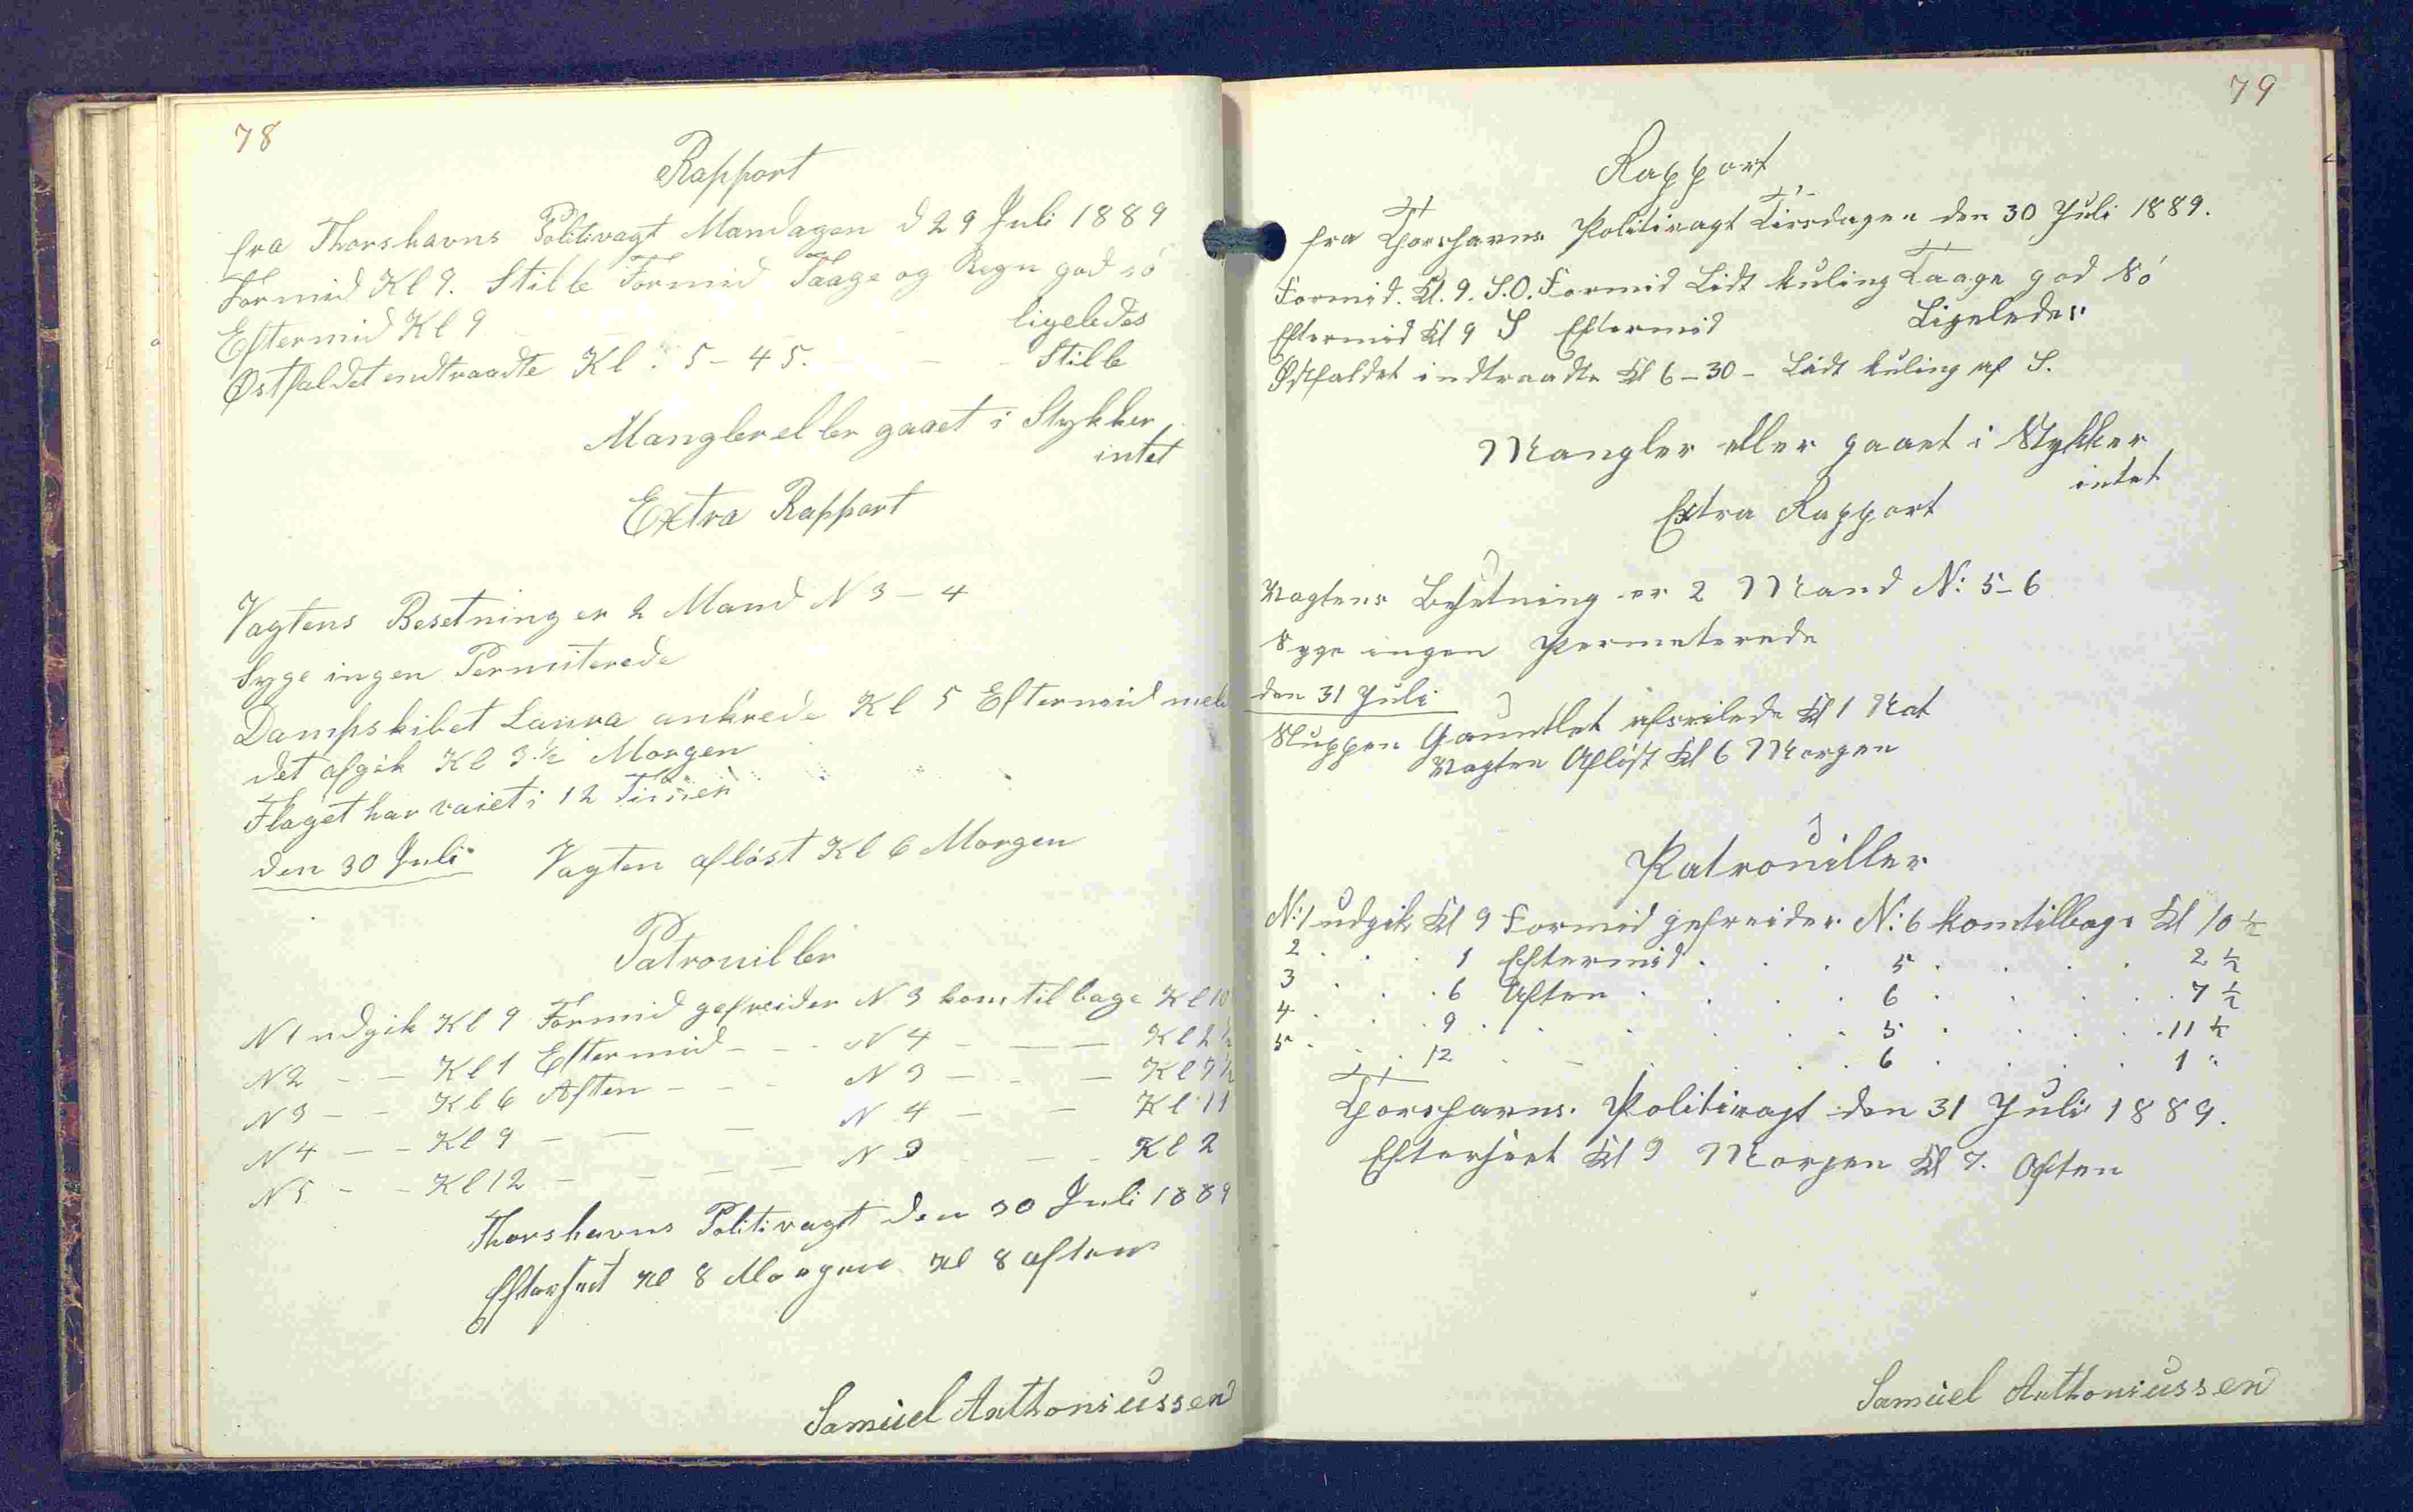 78
Rapport
fra Thorshavns Politivagt Mandagen d 29 Juli 1889
Formid Kl 9. Stille Formid Taage og Regn god só
Eftermid Kl 9 — — — ligeledes
Østfaldet indtraadte Kl. 5-45. — — Stille
Mangler eller gaaet i Stykker
intet
Extra Rapport
Vagtens Besetning er 2 Mand N 3-4
Syge ingen Permiterede
Dampskibet Laura ankrede Kl 5 Eftermid
det afgik Kl 3 ½ Morgen
Flaget har vaiet i 12 Timer
den 30 Juli Vagten aflöst Kl 6 Morgen
Patrouiller
N 1 udgik Kl 9 Formid gefreider N 3 kom tilbage Kl 10
N 2 — — Kl 1 Eftermid — — N 4 — — — Kl 2 ½
N 3 — — Kl 6 Aften — — — N 3 — — — Kl 7 ½
N 4 — — Kl 9 — — — N 4 — — Kl 11
N 5 — — Kl 12 — — — — N 3 — — Kl 2
Thorshavns Politivagt den 30 Juli 1889
Efterseet Kl 8 Morgen Kl 8 aften
Samuel Anthoniussen
79
Rapport
fra Thorshavns Politivagt Tirsdagen den 30 Juli 1889.
Formid. Kl. 9. S.O. Formid Lidt kuling Taage god Só
Eftermid Kl 9 S Eftermid Ligeledes
Østfaldet indtraadte Kl 6-30 - Lidt kuling af S.
Mangler eller gaaet i Stykker
intet
Extra Rapport
Vagtens Besetning er 2 Mand N: 5-6
Syge ingen Permeterede
den 31 Juli
Sluppen Gauntlet afseilede Kl 1 Nat
Vagten Aflöst Kl 6 Morgen
Patrouiller
N: 1 udgik Kl 9 Formid gefreider N: 6 kom tilbage Kl 10 ½
2 . . . 1 Eftermid . . . 5 . . . . 2 ½
3 . . . 6 Aften . . . . 6 . . . . 7 ½
4 . . . 9 . . . . . 5 . . . . 11 ½
5 . . . 12 . . . . . 6 . . . . 1 "
Thorshavns. Politivagt den 31 Juli 1889.
Efterseet Kl 9 Morgen Kl 7. Aften
Samuel Anthoniussen